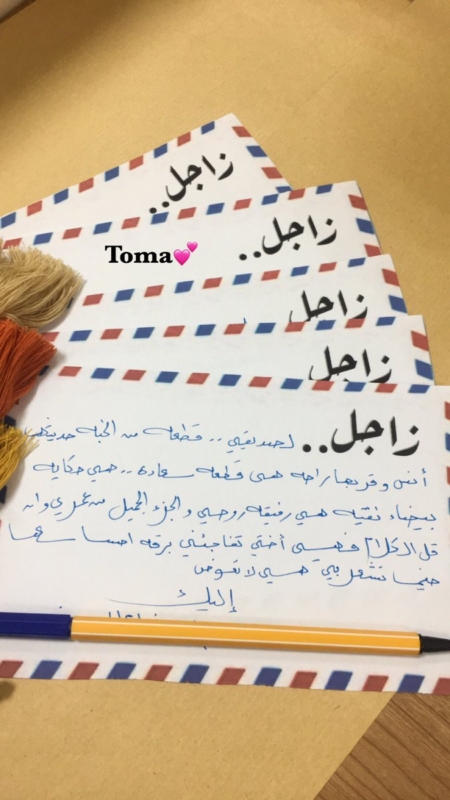 زاجل..
زاجل..
Toma💕
زاجل
زاجل
زاجل..
لصديقتي .. قطعه من الجنه حديثكِ
أنس وقربها راحه هي قطعه سعاده .. هي حكايه
بيضاء نقيه هي رفيقه روحي والجزء الجميل من عمري وان
قل الكلام فهي أختي تفاجئني برقه احساسها
حينما تشعر بي هي لا تعوض
إليك